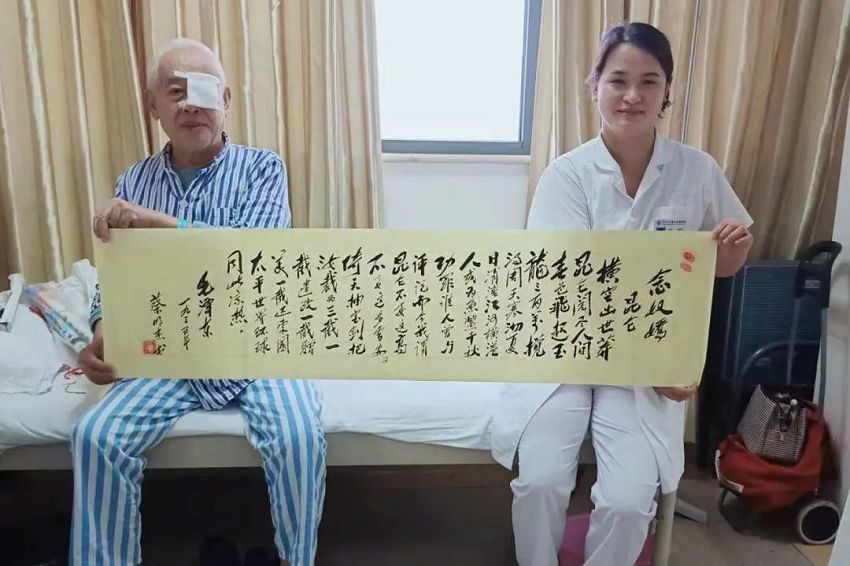 念奴嬌
昆仑
横空出世莽
昆仑阅尽人间
春色飛起玉
龍三百万搅
得周天寒彻夏
日消溶江河横溢
人或为魚鱉千秋
功罪谁人曾与
评说而今我谓
昆仑不要这高
不要这多雪安得
倚天抽宝剑把
汝裁为三截一
截遗欧一截赠
美一截还東國
太平世界环球
同此凉热
毛泽东
一九三五年
蔡 书